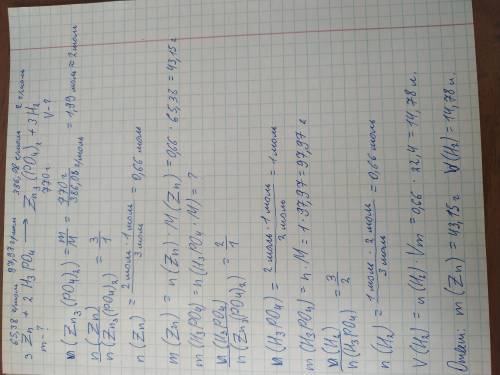 65,38 г/моль 97,97 г/моль 386,08 г/моль 2 г/моль
3 Zn + 2 H₃PO₄ ⟶ Zn₃(PO₄)₂ + 3H₂
m-? 770 г V-?
n(Zn₃(PO₄)₂) = m/M = 770 г/386,08 г/моль = 1,99 моль ≈ 2 моль
n(Zn)/n(Zn₃(PO₄)₂) = 3/1
n(Zn) = 2 моль · 1 моль/3 моль = 0,66 моль
m(Zn) = n(Zn) · M(Zn) = 0,66 · 65,38 = 43,15 г
m(H₃PO₄) = n(H₃PO₄ · M) = ?
n(H₃PO₄)/n(Zn₃(PO₄)₂) = 2/1
n(H₃PO₄) = 2 моль · 1 моль/2 моль = 1 моль
m(H₃PO₄) = n · M = 1 · 97,97 = 97,97 г
n(H₂)/n(H₃PO₄) = 3/2
n(H₂) = 1 моль · 2 моль/3 моль = 0,66 моль
V(H₂) = n(H₂) · Vm = 0,66 · 22,4 = 14,78 л.
Ответ: m(Zn) = 43,15 г V(H₂) = 14,78 л.